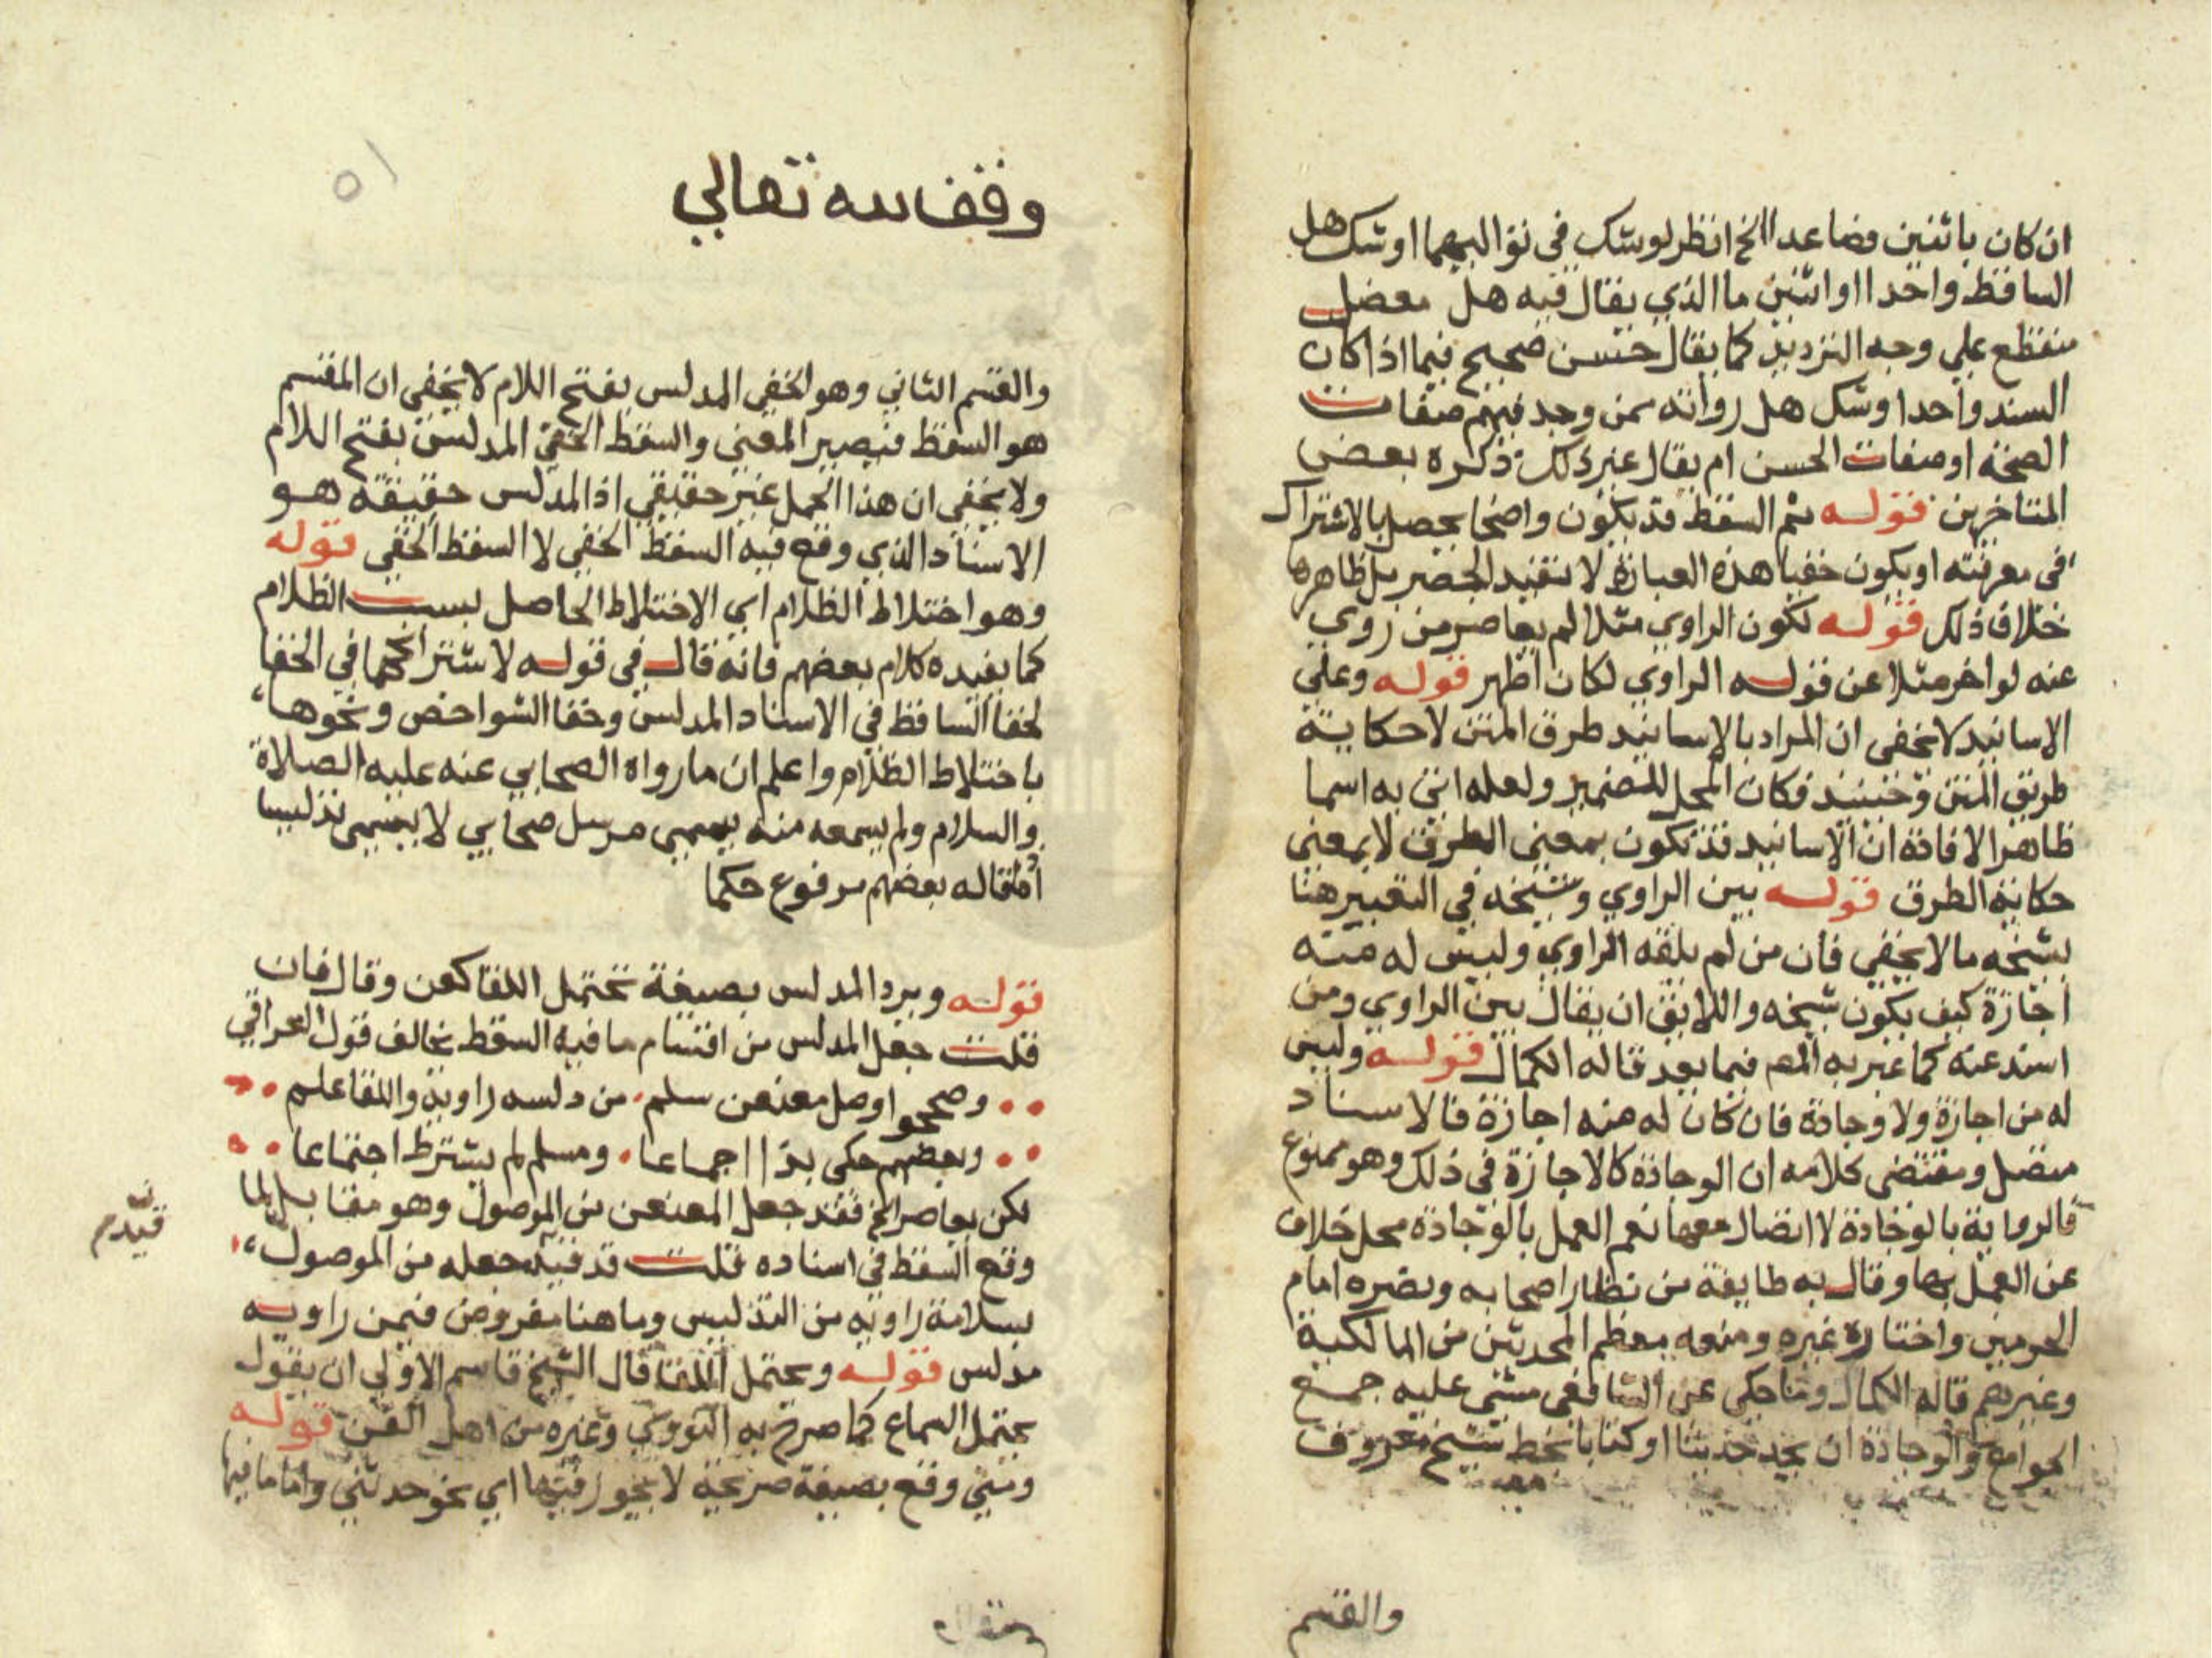 ان كان باثنين فصاعدا الخ انظر لو شك في تواليهما او شك هل
الساقط واحدا او اثنين ما الذي يقال فيه هل معضل
منقطع علي وجه الترديد كما يقال حسن صحيح فيما اذا كان
السند واحدا وشك هل رواته ممن وجد فيهم صفات
الصحة او صفات الحسن ام يقال غير ذلك ذكره بعض
المتاخرين قوله ثم السقط قد يكون واضحا يحصل بالاشتراك
في معرفته او يكون خفيا هذه العبارة لا تفيد الحصر بل ظاهرها
خلاف ذلك قوله لكون الراوي مثلا لم يعاصر من روي
عنه لو اخر مثلا عن قوله الراوي لكان اظهر قوله وعلي
الاسانيد لا يخفى ان المراد بالاسانيد طرق المتن لا حكاية
طريق المتن وحينئذ فكان المحل للضمير ولعله اتي به اسما
ظاهرا لافادة ان الاسانيد قد تكون بمعنى الطرق لا بمعنى
حكاية الطرق قوله بين الراوي وشيخه في التعبير هنا
بشيخه ما لا يخفي فان من لم يلقه الراوي وليس له منه
اجازة كيف يكون شيخه واللايق ان يقال بين الراوي ومن
اسند عنه كما عبر به المص فيما بعد قاله الكمال قوله وليس
له من اجازة ولا وجادة فان كان له منه اجازة فالاسناد
متصل ومقتضى كلامه ان الوجادة كالاجازة في ذلك وهو ممنوع
فالرواية بالوجادة لا اتصال معها نعم العمل بالوجادة محل خلاف
عن العمل بها وقال به طايفة من نظار اصحابه ونصره امام
الحرمين واختاره غيره ومنعه معظم المحدثين من المالكية
وغيرهم قاله الكمال وما حكي عن الشافعي مشى عليه جمع
الجوامع والوجادة ان يجد حديثا او كتابا بخط شيخ معروف
والقسم
وقف لله تعالي
٥١
والقسم الثاني وهو الخفي المدلس بفتح اللام لا يخفي ان المقسم
هو السقط فيصير المعني والسقط الخفي المدلس بفتح اللام
ولا يخفي ان هذا الحمل غير حقيقي اذ المدلس حقيقة هو
الاسناد الذي وقع فيه السقط الخفي لا السقط الخفي قوله
وهو اختلاط الظلام اي الاختلاط الحاصل بسبب الظلام
كما يفيده كلام بعضهم فانه قال في قوله لاشتراكهما في الخفا
لخفا الساقط في الاسناد المدلس وخفا الشواخص ونحوها
باختلاط الظلام واعلم ان ما رواه الصحابي عنه عليه الصلاة
والسلام ولم يسمعه منه يسمي مرسل صحابي لا يسمي تدليسا
قاله بعضهم مرفوع حكما
قوله ويرد المدلس بصيغة تحتمل اللقا كعن وقال فان
قلت جعل المدلس من اقسام ما فيه السقط يخالف قول العراقي
وصححوا وصل معنعن سلم من دلسه راويه واللقا علم
وبعضهم حكى بذا اجماعا ومسلم لم يشترط اجتماعا
لكن يعاصر الخ فقد جعل المعنعن من الموصول وهو مقابل لما
وقع السقط في اسناده قلت قد قيد جعله من الموصول
بسلامة راويه من التدليس وما هنا مفروض فيمن راويه
مدلس قوله ويحتمل اللقا قال الشيخ قاسم الاولي ان يقول
يحتمل السماع كما صرح به النووي وغيره من اهل الفن قوله
ومتي وقع بصيغة صريحة لا يجوز فيها اي نحو حدثني واما ما فيها